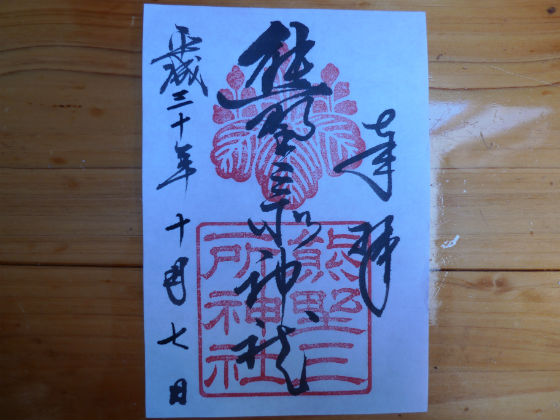 奉拝
熊野三所神社
平成三十年十月七日
熊野三
所神社